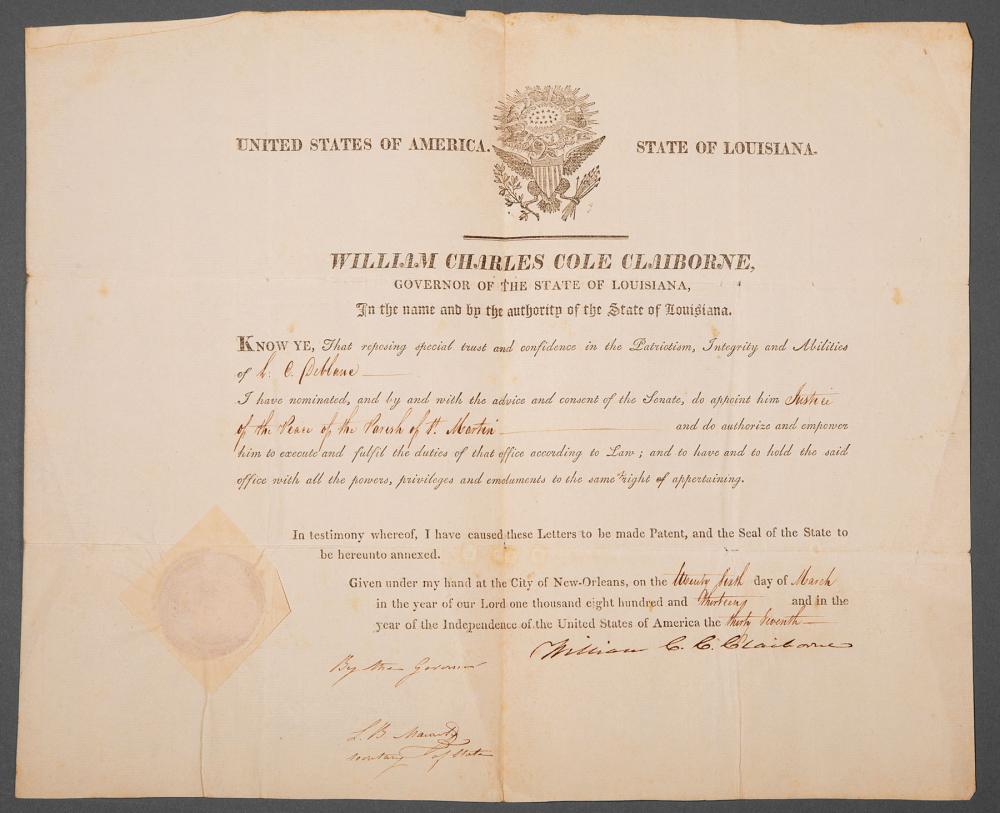 UNITED STATES OF AMERICA. STATE OF LOUISIANA.
WILLIAM CHARLES COLE CLAIBORNE,
GOVERNOR OF THE STATE OF LOUISIANA,
In the name and by the authority of the State of Louisiana.
KNOW YE, That reposing special trust and confidence in the Patriotism, Integrity and Abilities
of L. C. Deblanc
I have nominated, and by and with the advice and consent of the Senate, do appoint him Justice
of the Peace of the Parish of St. Martin and do authorize and empower
him to execute and fulfil the duties of that office according to Law; and to have and to hold the said
office with all the powers, privileges and emoluments to the same right of appertaining.
In testimony whereof, I have caused these Letters to be made Patent, and the Seal of the State to
be hereunto annexed.
Given under my hand at the City of New-Orleans, on the twenty sixth day of March
in the year of our Lord one thousand eight hundred and thirteen and in the
year of the Independence of the United States of America the thirty seventh
William C. C. Claiborne
By the Governor
L. B. Macarty
secretary of state